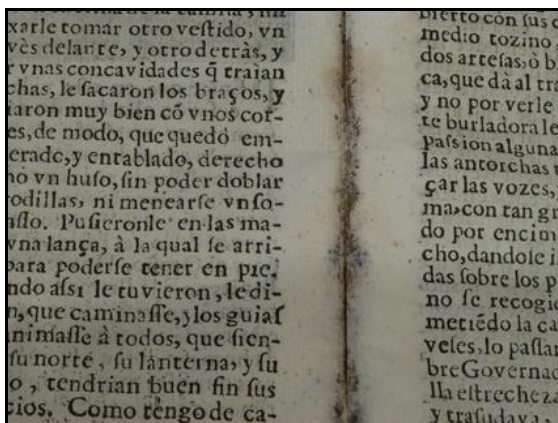 xarle tomar otro veſtido, vn
vès delante, y otro detràs, y
r vnas concavidades q̃ traìan
chas, le ſacaron los braços, y
iaron muy bien cõ vnos cor-
es, de modo, que quedó em-
erado, y entablado, derecho
mo vn huſo, ſin poder doblar
rodillas, ni menearſe vn ſo-
aſſo. Puſieronle en las ma-
vna lança, à la qual ſe arri-
para poderſe tener en pie.
ndo aſsi le tuvieron, le di-
n, que caminaſſe, y los guiaſ
nimaſſe à todos, que ſien-
ſu norte, ſu lanterna, y ſu
o, tendrian buen fin ſus
cios. Como tengo de ca-
bierto con ſus
medio tozino
dos arteſas, ò b
ca, que dà al tra
y no por verle
te burladora le
paſsion alguna
las antorchas
çar las vozes,
ma, con tan gr
do por encim
cho, dandole i
das ſobre los p
no ſe recogie
metiẽdo la ca
veſes, lo paſſar
bre Governad
lla eſtrecheza
y traſudava,